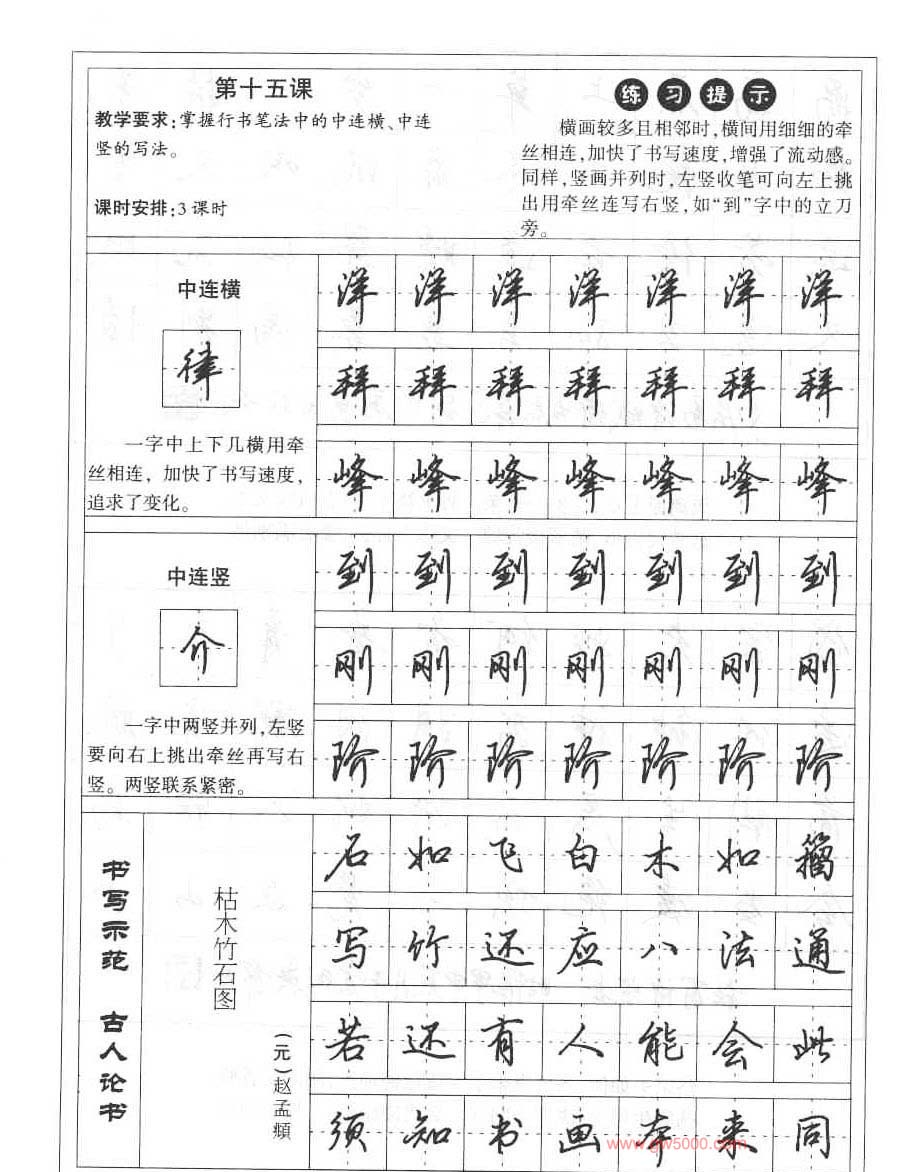 第十五课
教学要求:掌握行书笔法中的中连横、中连
竖的写法。
课时安排:3课时
练习提示
横画较多且相邻时,横间用细细的牵
丝相连,加快了书写速度,增强了流动感。
同样,竖画并列时,左竖收笔可向左上挑
出用牵丝连写右竖,如“到”字中的立刀
旁。
中连横
律
一字中上下几横用牵
丝相连,加快了书写速度,
追求了变化。
洋洋洋洋洋洋洋
拜拜拜拜拜拜拜
峰峰峰峰峰峰峰
中连竖
介
一字中两竖并列,左竖
要向右上挑出牵丝再写右
竖。两竖联系紧密。
到到到到到到到
刚刚刚刚刚刚刚
阶阶阶阶阶阶阶
书写示范 古人论书
枯木竹石图
(元)赵孟頫
石如飞白木如籀
写竹还应八法通
若还有人能会此
须知书画本来同
www.gw5000.com